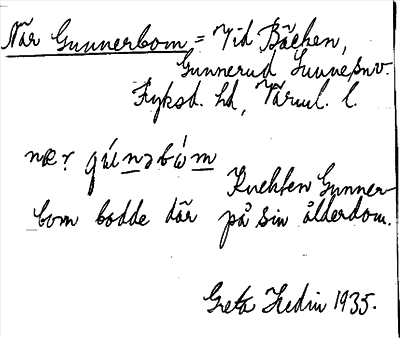 När Gunnerbom = Vid Bäcken,
Gunnerud Sunne snv.
Fryksd. hd, Värml. l.
næ.r gúnəbòm
Knekten Gunner-
bom bodde där på sin ålderdom.
Greta Hedin 1935.